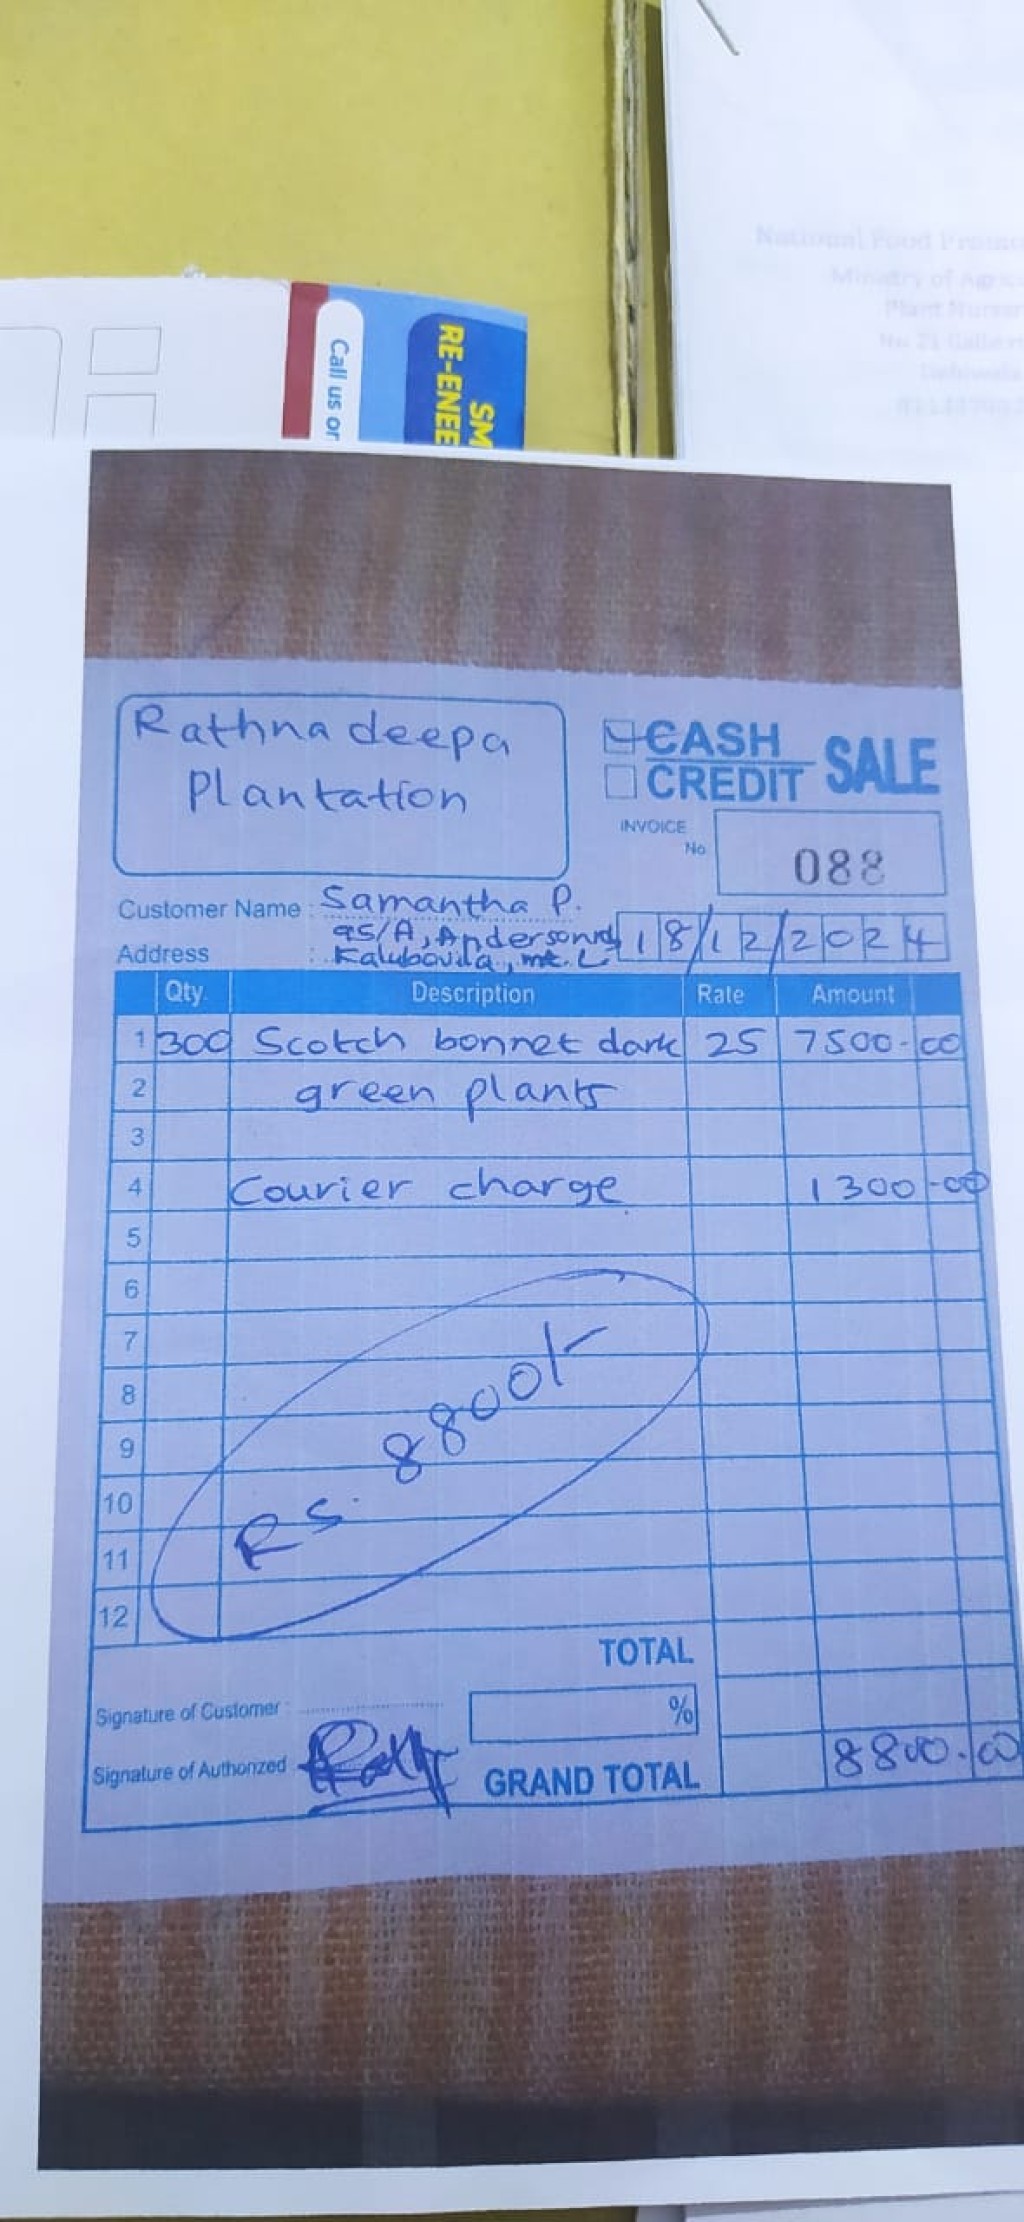 National Food
Ministry of
Plant
No 21
Call us or
SM
RE-ENEE
Rathna deepa
Plantation
CASH
CREDIT
SALE
INVOICE
No
088
Customer Name : Samantha P.
Address : 95/A, Anderson rd
Kalubovila, mt. L
18/12/2024
Qty. Description Rate Amount
1 300 Scotch bonnet dark 25 7500-00
2 green plants
3
4 Courier charge 1300-00
5
6
7
8
9
10
11
12
Rs. 8800/-
TOTAL
Signature of Customer :
%
Signature of Authorized
GRAND TOTAL 8800.00